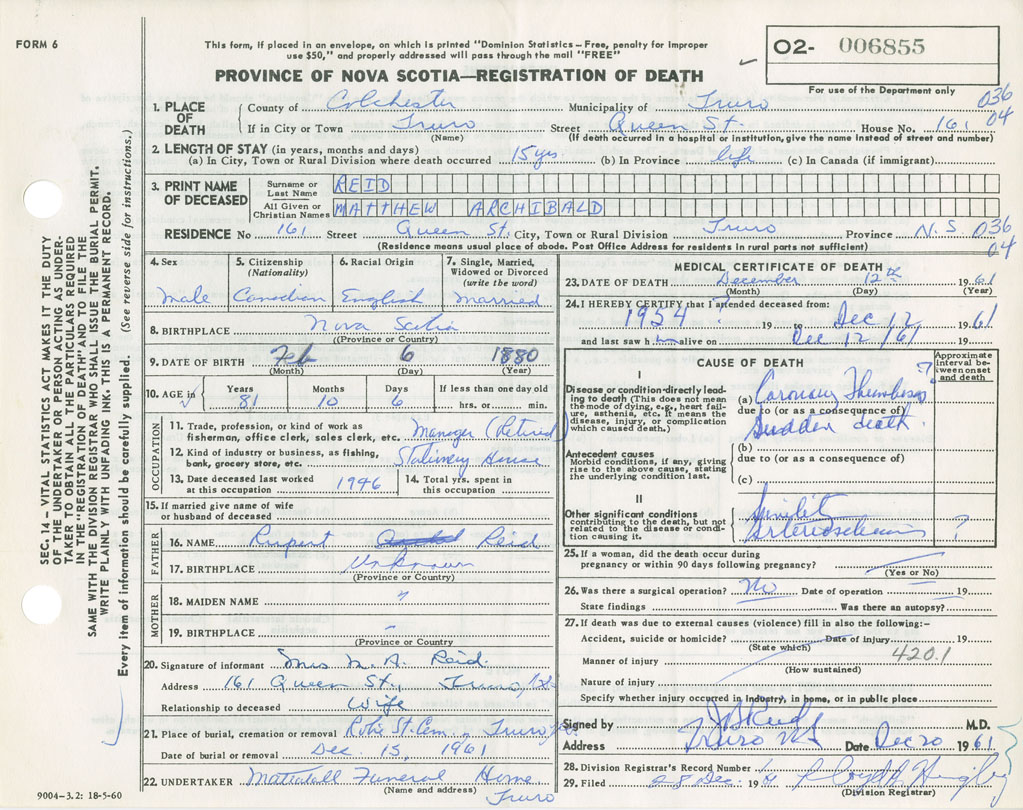 FORM 6
This form, if placed in an envelope, on which is printed "Dominion Statistics – Free, penalty for improper
use $50," and properly addressed will pass through the mail "FREE"
02- 006855
PROVINCE OF NOVA SCOTIA—REGISTRATION OF DEATH
For use of the Department only
036
04
1. PLACE OF DEATH
County of Colchester Municipality of Truro
If in City or Town Truro Street Queen St. House No. 161
(Name) (If death occurred in a hospital or institution, give the name instead of street and number)
2. LENGTH OF STAY (in years, months and days)
(a) In City, Town or Rural Division where death occurred 15 yrs (b) In Province life (c) In Canada (if immigrant)
3. PRINT NAME OF DECEASED
Surname or Last Name REID
All Given or Christian Names MATTHEW ARCHIBALD
RESIDENCE No 161 Street Queen St. City, Town or Rural Division Truro Province N.S. 036
04
(Residence means usual place of abode. Post Office Address for residents in rural parts not sufficient)
4. Sex
male
5. Citizenship
(Nationality)
Canadian
6. Racial Origin
English
7. Single, Married,
Widowed or Divorced
(write the word)
married
8. BIRTHPLACE Nova Scotia
(Province or Country)
9. DATE OF BIRTH Feb 6 1880
(Month) (Day) (Year)
10. AGE in
Years Months Days If less than one day old
81 10 6 hrs. or min.
OCCUPATION
11. Trade, profession, or kind of work as
fisherman, office clerk, sales clerk, etc. Manager (Retired)
12. Kind of industry or business, as fishing,
bank, grocery store, etc. Stationery House
13. Date deceased last worked
at this occupation 1946
14. Total yrs. spent in
this occupation
15. If married give name of wife
or husband of deceased
FATHER
16. NAME Rupert Reid
17. BIRTHPLACE Unknown
(Province or Country)
MOTHER
18. MAIDEN NAME
19. BIRTHPLACE
(Province or Country)
20. Signature of informant Mrs M. A. Reid
Address 161 Queen St., Truro, N.S.
Relationship to deceased Wife
21. Place of burial, cremation or removal Robie St. Cem, Truro
Date of burial or removal Dec. 15, 1961
22. UNDERTAKER Mattatall Funeral Home
(Name and address)
Truro
MEDICAL CERTIFICATE OF DEATH
23. DATE OF DEATH December 12th 1961
(Month) (Day) (Year)
24. I HEREBY CERTIFY that I attended deceased from:
1954 ? 19 to Dec 12 1961
and last saw him alive on Dec 12/61 19
CAUSE OF DEATH
Approximate
interval be-
tween onset
and death
I
Disease or condition directly lead-
ing to death (This does not mean
the mode of dying, e.g., heart fail-
ure, asthenia, etc. It means the
disease, injury, or complication
which caused death.)
(a) Coronary Thrombosis ?
due to (or as a consequence of)
Sudden death.
Antecedent causes
Morbid conditions, if any, giving
rise to the above cause, stating
the underlying condition last.
(b)
due to (or as a consequence of)
(c)
II
Other significant conditions
contributing to the death, but not
related to the disease or condi-
tion causing it.
Senility
Arteriosclerosis ?
25. If a woman, did the death occur during
pregnancy or within 90 days following pregnancy?
(Yes or No)
26. Was there a surgical operation? No Date of operation 19
State findings Was there an autopsy?
27. If death was due to external causes (violence) fill in also the following:–
Accident, suicide or homicide? Date of injury 19
(State which)
420.1
Manner of injury
(How sustained)
Nature of injury
Specify whether injury occurred in industry, in home, or in public place
Signed by Reid M.D.
Address Truro NS Date Dec 20 1961
28. Division Registrar's Record Number
29. Filed 28 Dec. 19
(Division Registrar)
SEC. 14 – VITAL STATISTICS ACT MAKES IT THE DUTY
OF THE UNDERTAKER OR PERSON ACTING AS UNDER-
TAKER TO OBTAIN ALL THE PARTICULARS REQUIRED
IN THE "REGISTRATION OF DEATH" AND TO FILE THE
SAME WITH THE DIVISION REGISTRAR WHO SHALL ISSUE THE BURIAL PERMIT.
WRITE PLAINLY WITH UNFADING INK. THIS IS A PERMANENT RECORD.
Every item of information should be carefully supplied. (See reverse side for instructions.)
9004-3.2: 18-5-60